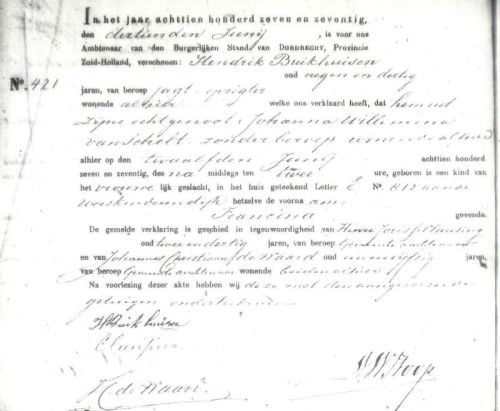 In het jaar achttien honderd zeven en zeventig,
den dertienden Junij, is voor ons
Ambtenaar van den Burgerlijken Stand van DORDRECHT, Provincie
Zuid-Holland, verschenen: Hendrik Buikhuisen
oud negen en dertig
No. 421
jaren, van beroep jagt oprigter
wonende alhier welke ons verklaard heeft, dat hem uit
zijne echtgenoot: Johanna Willemina
van schelt zonder beroep wonende alhier
alhier op den twaalfden Junij achttien honderd
zeven en zeventig, des na middags ten twee ure, geboren is een kind van
het vrouwelijk geslacht, in het huis geteekend Letter E No. 812 aan de
hetzelve de voorna am:
Francina gevende.
De gemelde verklaring is geschied in tegenwoordigheid van
oud twee en dertig jaren, van beroep Gemeente ambtenaar
en van Johannes Christiaan de Waard oud jaren,
van beroep Gemeente ambtenaar wonende beiden alhier
Na voorlezing dezer akte hebben wij deze met den aangever en de
getuigen onderteekend
H Buikhuisen
Clausing
H de Waard